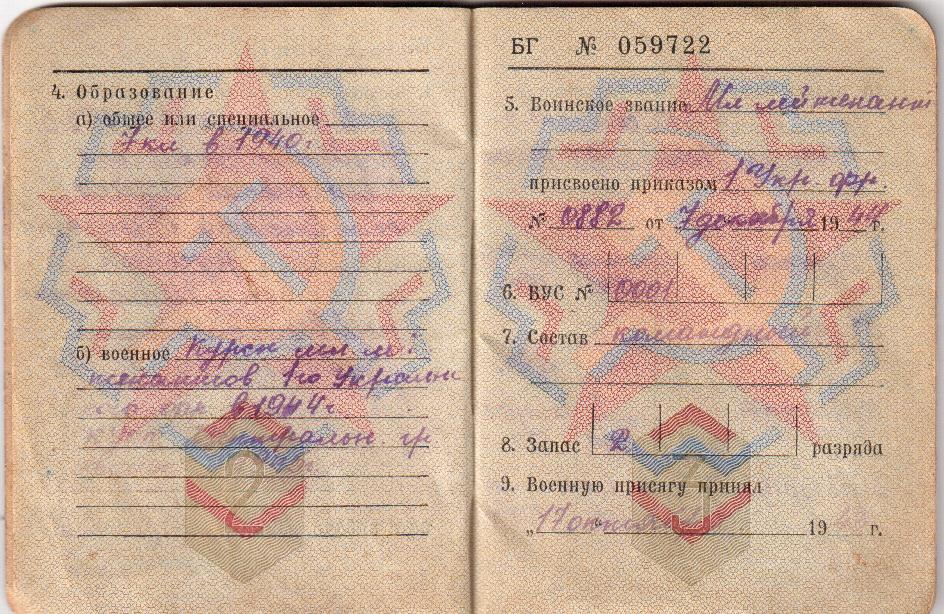 4. Образование
а) общее или специальное
7 кл в 1940 г
б) военное Курсы мл лей
тенантов 1го Украин
в 1944 г
2
БГ № 059722
5. Воинское звание Мл лейтенант
присвоено приказом 1 Укр. фр.
№ 0882 от 7 декабря 1944 г.
6. ВУС № 0001
7. Состав командный
8. Запас 2 разряда
9. Военную присягу принял
„17 19 г.
3